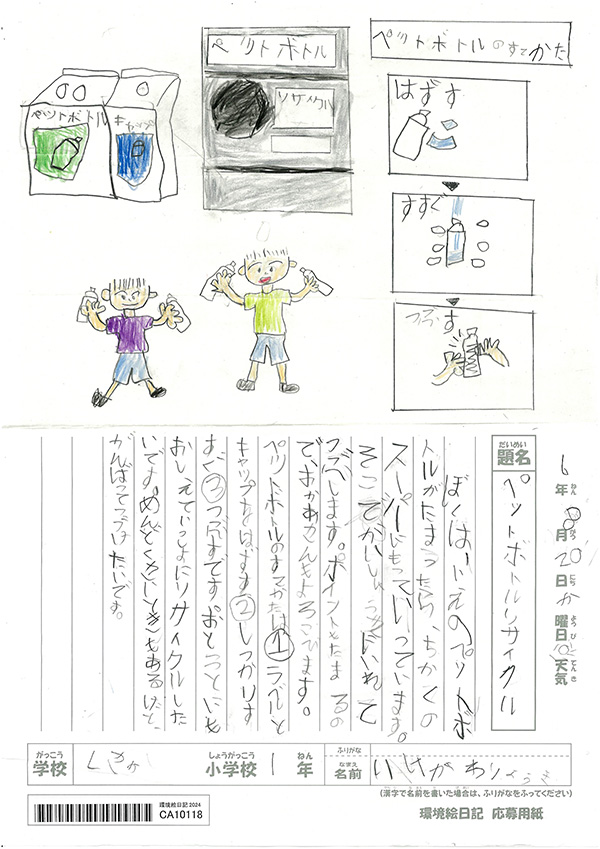 ペットボトル
キャップ
ペットボトル
リサイクル
ペットボトルのすてかた
はずす
すすぐ
つぶす
6年8月20日か曜日天気
ねん
がつ
にち
ようび
てんき
だいめい
題名
ペットボトルリサイクル
ぼくは、いえのペットボ
トルがたまったら、ちかくの
スーパーにもっていっています。
そこ
いれて
つぶします。ポイントもたまるの
で、おかあさんもよろこびます。
ペットボトルのすてかたは①ラベルと
キャップをはずす②しっかりす
すぐ③つぶすです。おとうとにも
おしえていっしょにリサイクルした
いです。めんどくさいときもあるけど、
がんばってつづけたいです。
がっこう
学校
しょうがっこう
小学校
1
ねん
年
ふりがな
なまえ
名前
(漢字で名前を書いた場合は、ふりがなをふってください)
環境絵日記2024
CA10118
環境絵日記 応募用紙